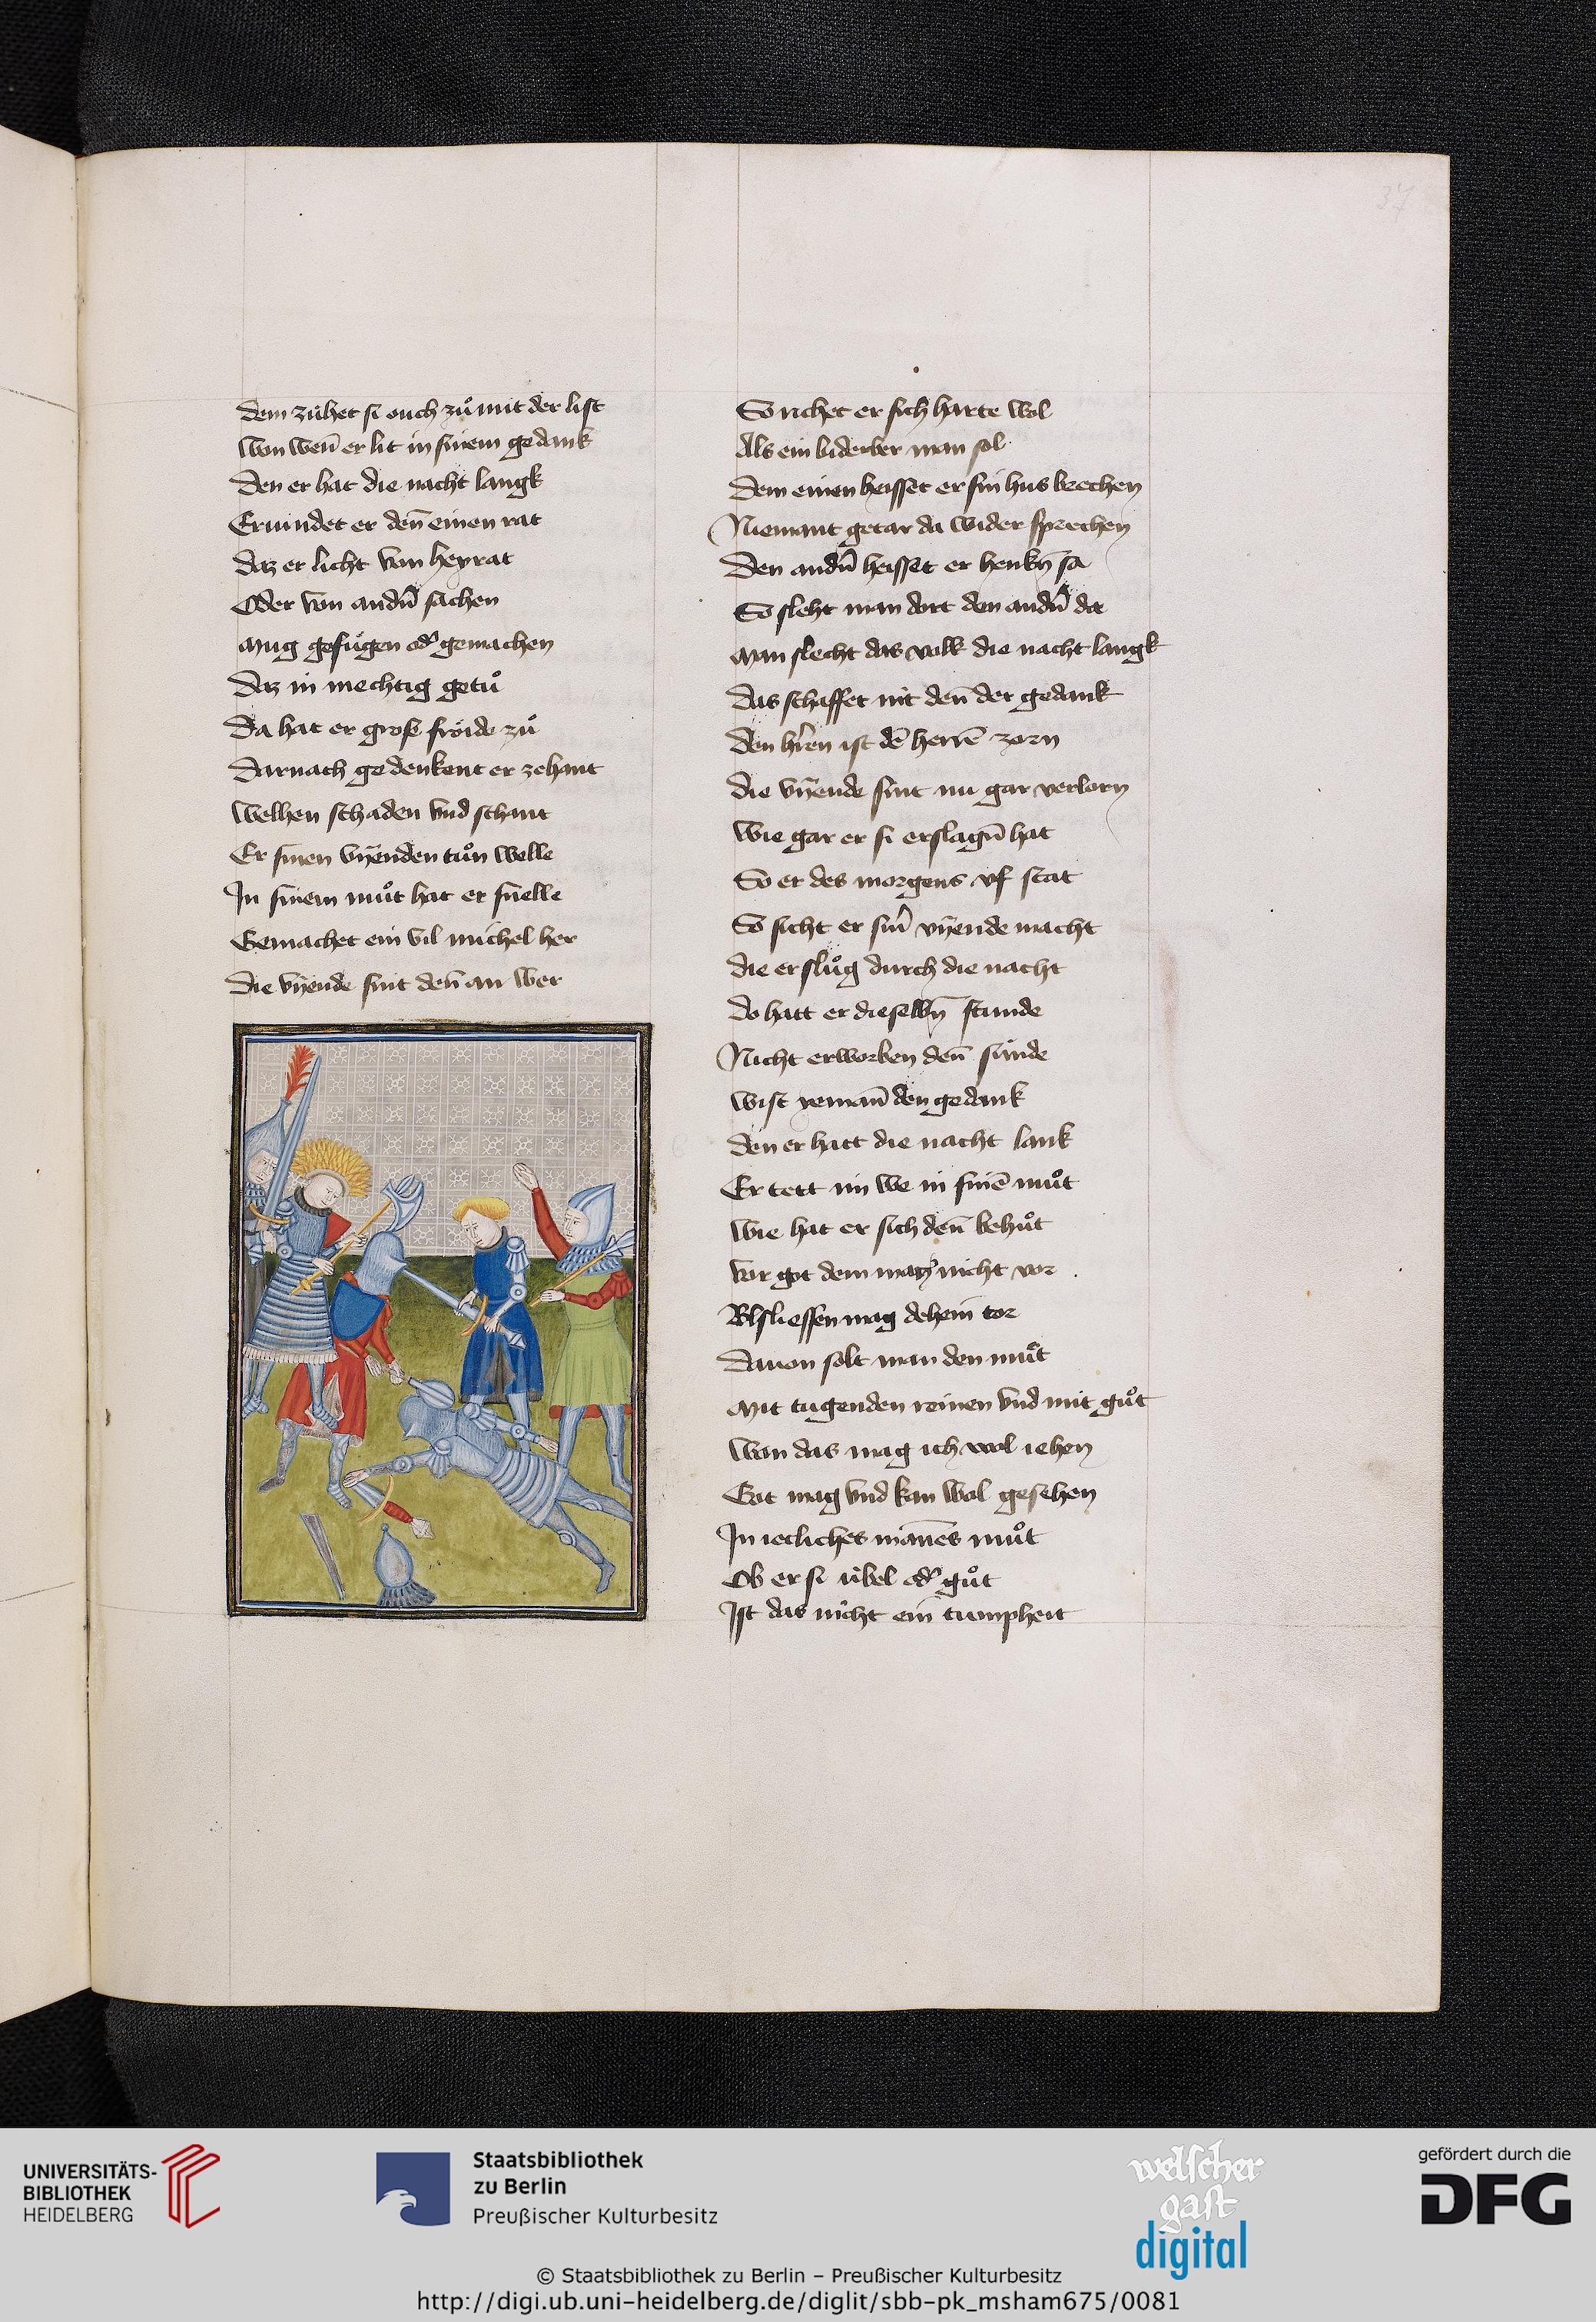 37
Dem zühet si ouch zuͦ mit der list
Won wen̄ er lit in sinem gedank
Den er hat die nacht langk
Ervindet er den̄ einen rat
Daz er licht von heyrat
Oder von andn̄ sachen
Mug gefuͤgen od͛ gemachen
Daz in mechtig getuͦ
Da hat er gross froͤide zuͦ
Darnach gedenkent er zehant
Welhen schaden vnd schant
Er sinen vÿenden tuͦn welle
In sinem muͦt hat er snelle
Gemachet ein vil michel her
Die vÿende sint den̄ an wer
So richet er sich harte wol
Als ein biderber man sol
Dem einen heisset er sin hus brechen
Niemant getar da wider sprechen
Den andn̄ heisset er henkn̄ sa
So sleht man dort den andn̄ da
Man slecht das volk die nacht langk
Das schaffet nit den̄ der gedank
Den hr̄en ist dē herrē zorn
Die vÿende sint nu gar verlorn
Wie gar er si erslagn̄ hat
So er des morgens vf stat
So sicht er sin͛ vÿende macht
Die er sluͦg durch die nacht
Do hatt er dieselbn̄ stunde
Nicht erworben den̄ sünde
Wist yeman̄ den gedank
Den er hatt die nacht lank
Er tett im we in sinē muͦt
Wie hat er sich den̄ behuͦt
Vor got dem man nicht vor
Beslieffen mag dehein tor
Davon solt man den muͦt
Mit tugenden reinen vnd mit guͦt
Wan das mag ich wol iehen
Got mag vnd kan wol gesehen
In iecliches man̄es muͦt
Ob er si übel od͛ guͦt
Ist das nicht ein tumpheit
UNIVERSITÄTS-
BIBLIOTHEK
HEIDELBERG
Staatsbibliothek
zu Berlin
Preußischer Kulturbesitz
welscher
gast
digital
gefördert durch die
DFG
© Staatsbibliothek zu Berlin – Preußischer Kulturbesitz
http://digi.ub.uni-heidelberg.de/diglit/sbb-pk_msham675/0081